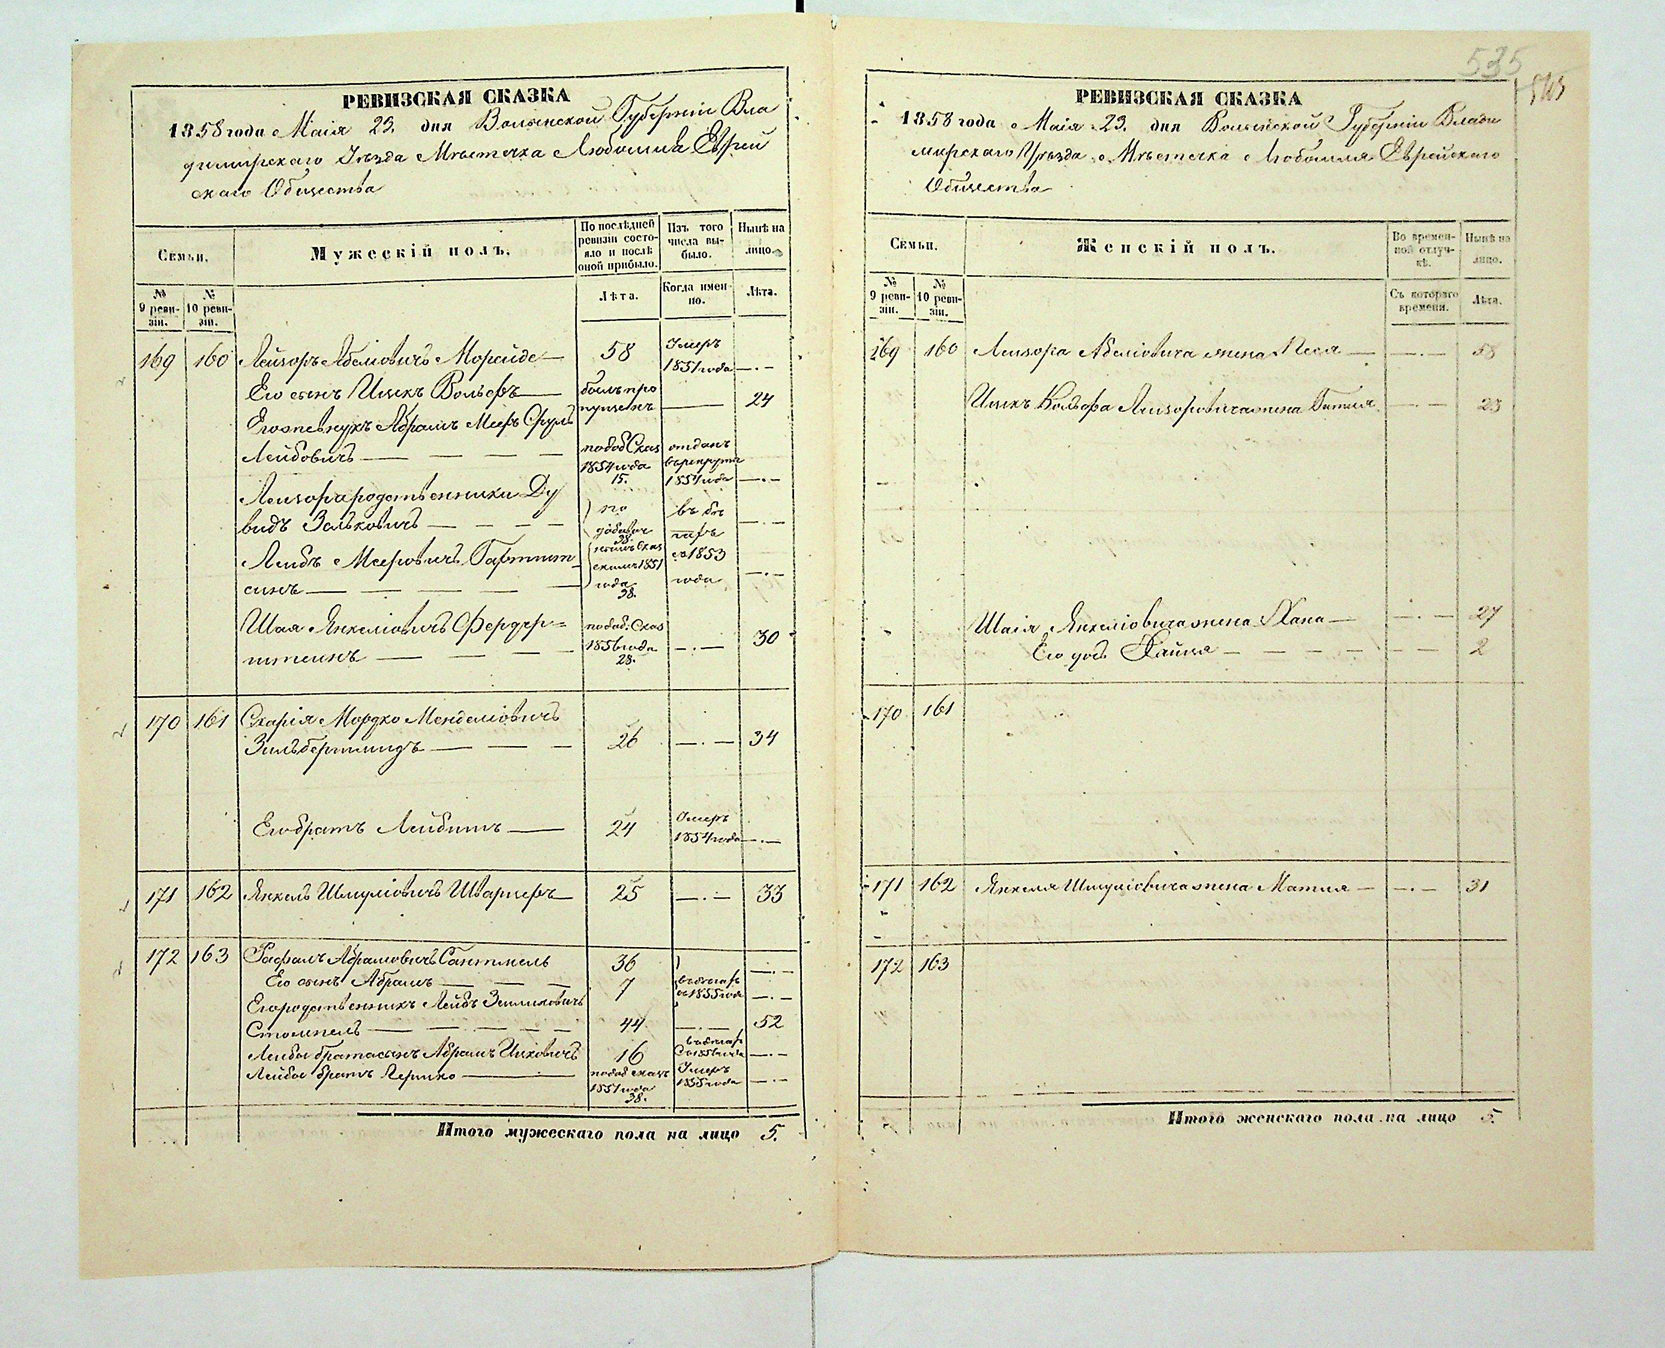 535
РЕВИЗСКАЯ СКАЗКА
1858 года Маія 23. дня Волынской Губерніи Вла
димирскаго Уѣзда Мѣстечка Любомля Еврей
скаго Общества
Семьи.
Мужескій полъ.
По послѣдней ревизіи состо-
яло и послѣ оной прибыло.
Изъ того числа вы-
было.
Нынѣ на лицо.
№ 9 реви-
зіи.
№ 10 реви-
зіи.
Лѣта.
Когда имен-
но.
Лѣта.
169 160 Лейзоръ Абеліовичъ 58 Умеръ
1851 года
Его сынъ Ицекъ Вольфъ былъ про
пущенъ 24
Абрамъ Мееръ
Лейбовичъ по доб Сказ отданъ
1854 года врекруты
15. 1854 года
Лейзора родственники Ду
видъ Зельковичъ по въ бѣ
гахъ
38
Лейбъ Мееровичъ
съ 1853
1851
года года
38.
Шая Янкеліовичъ Фердер=
штеинъ по доб. Сказ
1856 года
28. 30
170 161 Схарія Мордко Менделіовичъ
Зильберштицъ 26 34
Его братъ Лейбишъ 24 Умеръ
1854 года
171 162 Янкель Шмуліовичъ Шварцеръ 25 33
172 163 Рафалъ Абрамовичъ 36
Его сынъ Абрамъ 7 въ бѣгахъ
съ 1855 года
Его родственникъ Лейбъ
44 52
Лейбы брата сынъ Абрамъ Ицковичъ 16
Лейбы братъ Гершко по доб сказ Умеръ
1851 года 1855 года
38.
Итого мужескаго пола на лицо 5.
РЕВИЗСКАЯ СКАЗКА
1858 года Маія 23. дня Волынской Губерніи Влади
мирскаго Уѣзда Мѣстечка Любомля Еврейскаго
Общества
Семьи.
Женскій полъ.
Во времен-
ной отлуч-
кѣ.
Нынѣ на лицо.
№ 9 реви-
зіи.
№ 10 реви-
зіи.
Съ котораго времени.
Лѣта.
169 160 Лейзора Абеліовича жена Песя 58
Ицекъ Вольфа Лейзоровича жена Гитля 23
Шаія Янкеліовича жена Хана 27
Его дочь Хайця 2
170 161
171 162 Янкеля Шмуліовича жена Матля 31
172 163
Итого женскаго пола на лицо 5.